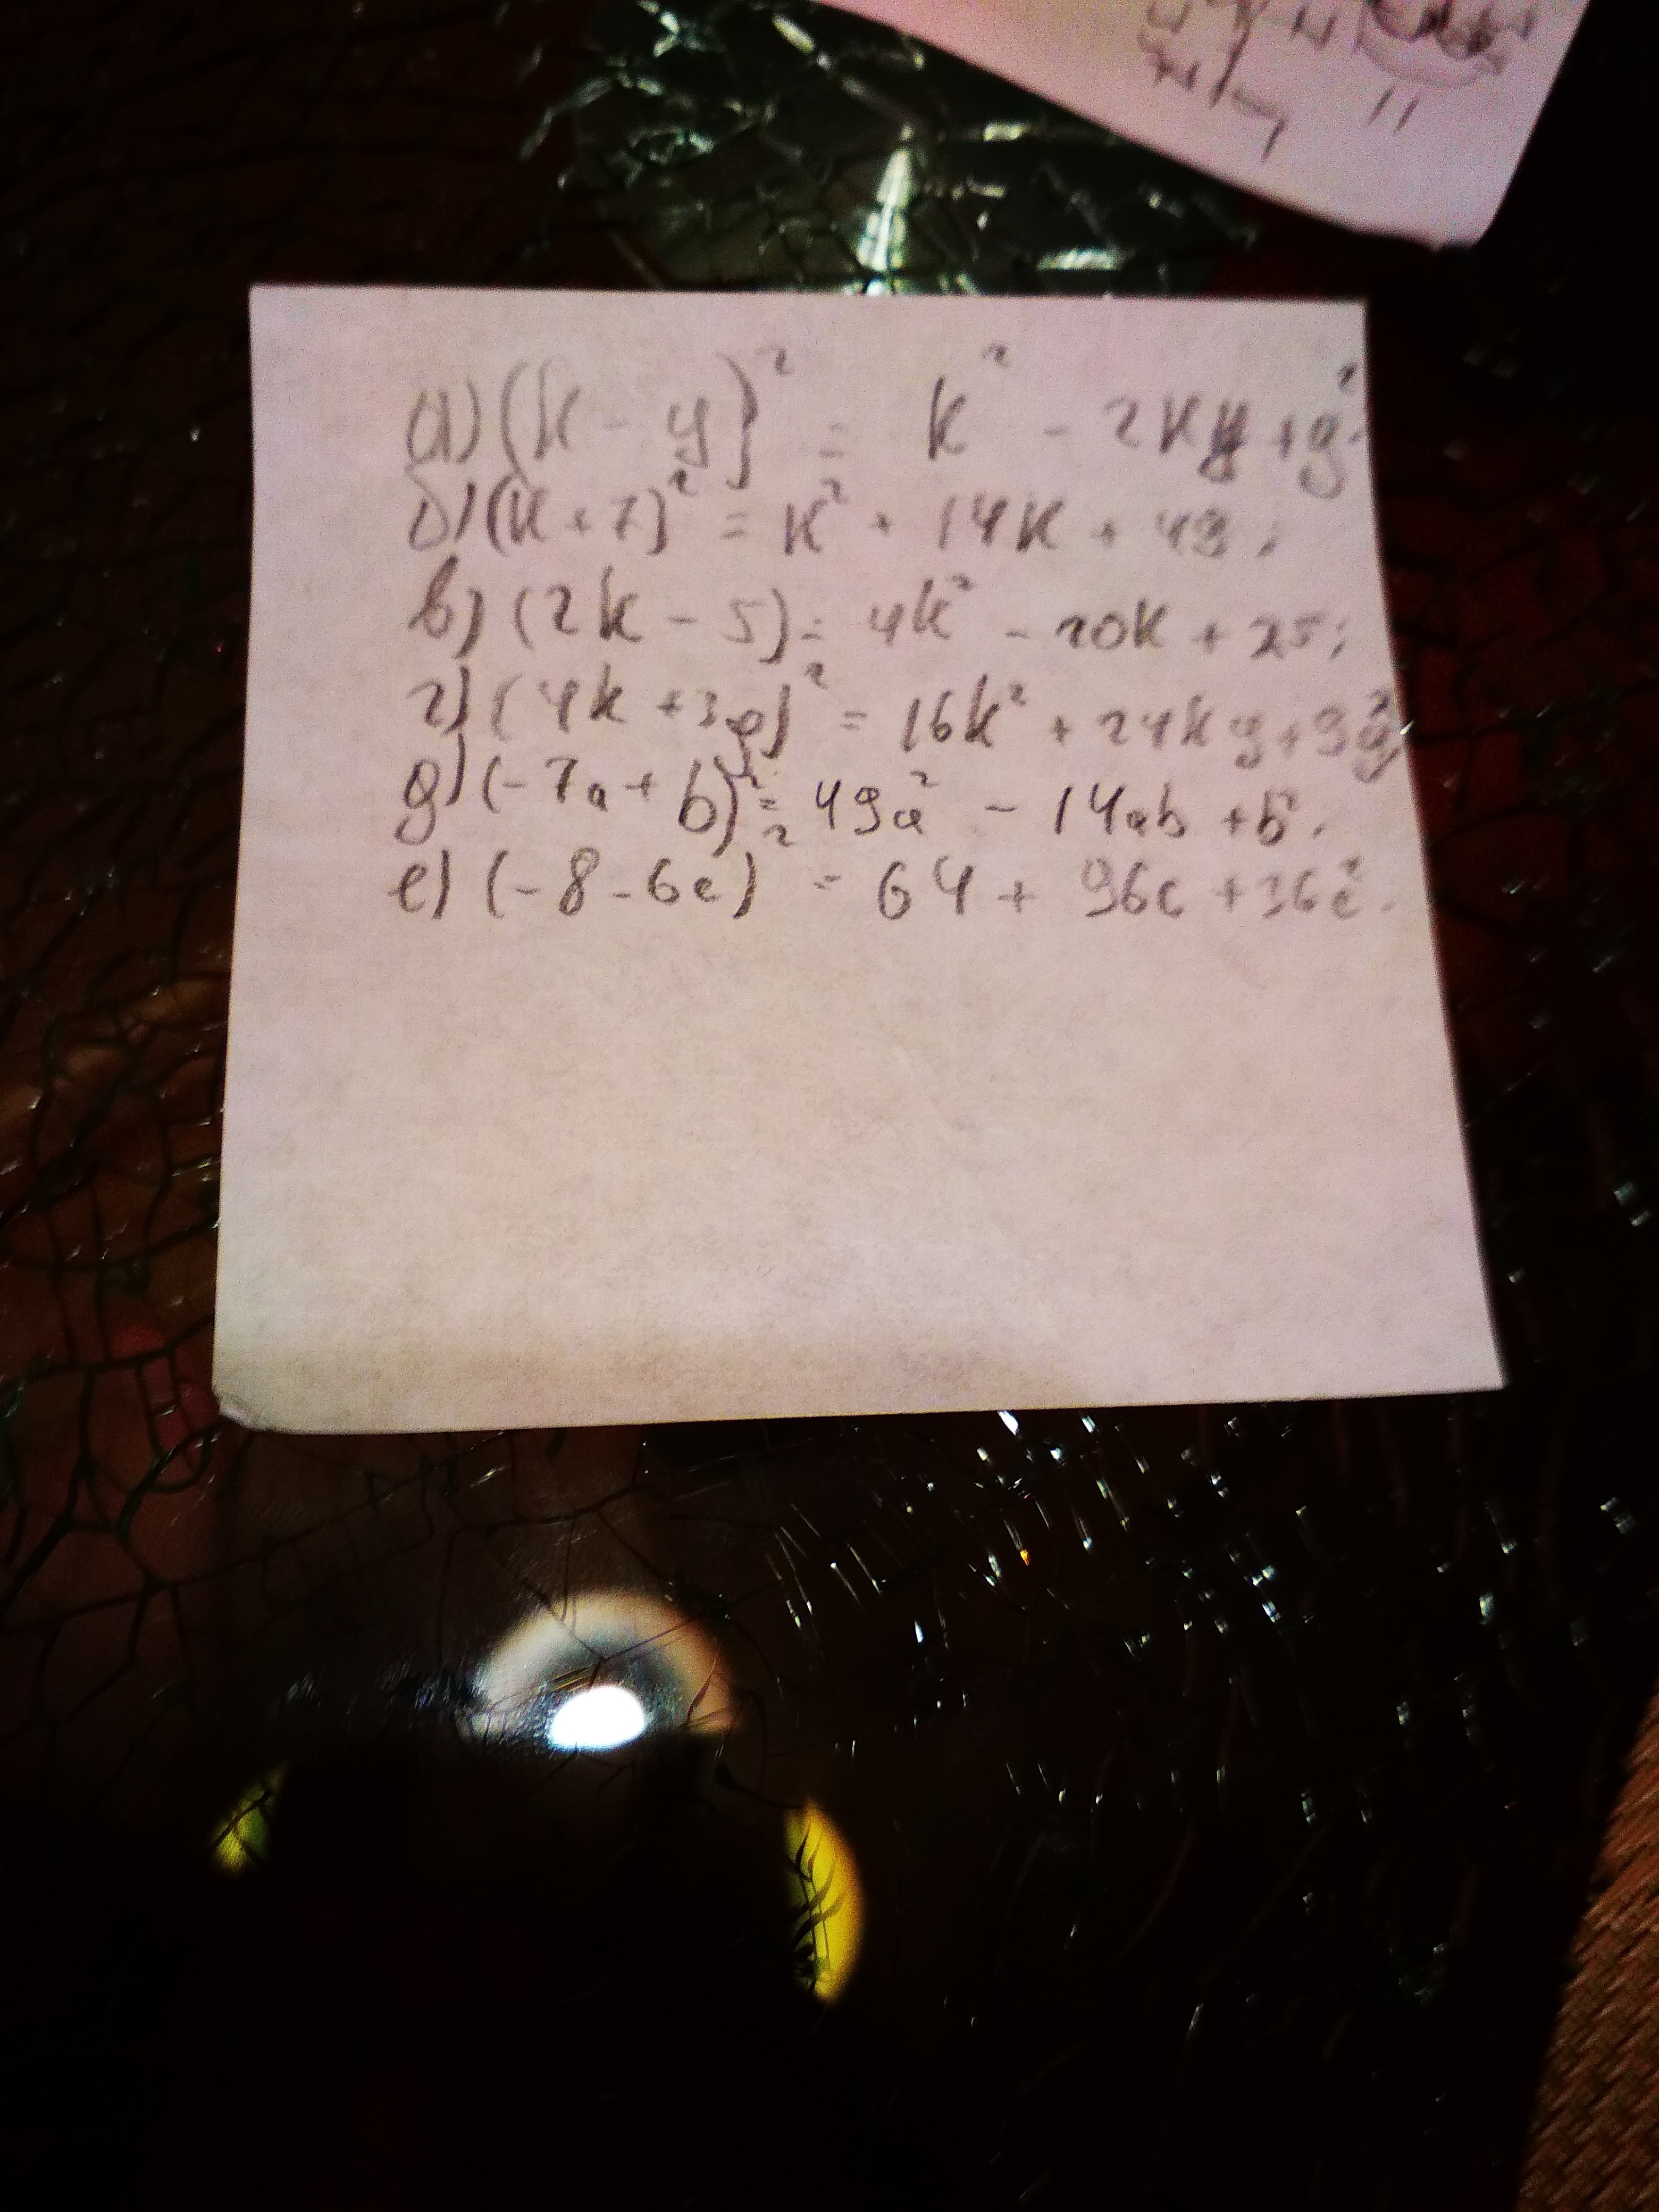 а) (k - y)² = k² - 2ky + y²;
б) (k + 7)² = k² + 14k + 49;
в) (2k - 5)² = 4k² - 20k + 25;
г) (4k + 3y)² = 16k² + 24ky + 9y²
д) (-7a + b)² = 49a² - 14ab + b².
е) (-8 - 6c)² = 64 + 96c + 36c².